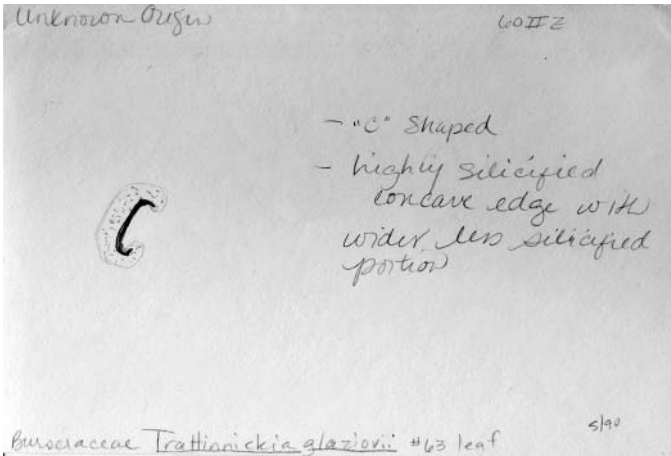 Unknown Origin
60 II Z
- "C" Shaped
- highly silicified
concave edge with
wider less silicified
portion
5/90
Burseraceae Trattinnickia glaziovii #63 leaf